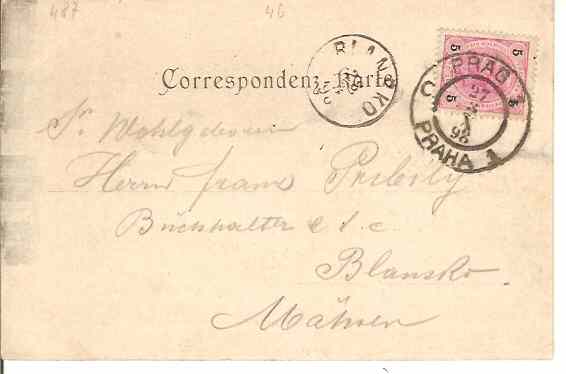 487
46
BLANSKO
5 5 5 5
PRAG 1
27
98
PRAHA 1
Correspondenz-Karte
Sr. Wohlgeboren
Herrn Franz Pribily
Buchhalter e. t. c.
Blansko
Mähren